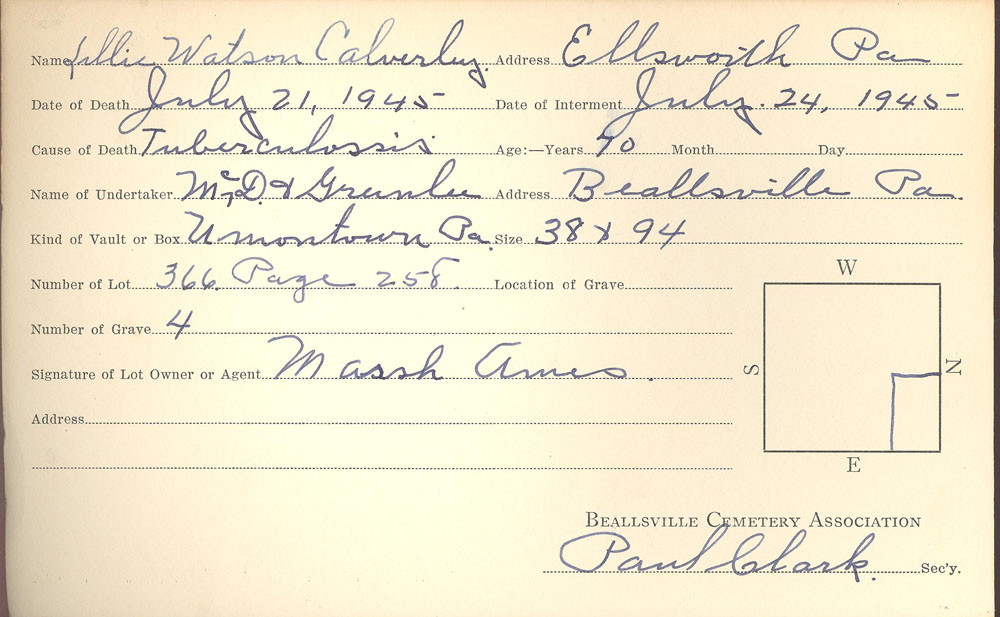 Name Lillie Watson Calverley. Address Ellsworth Pa
Date of Death July 21, 1945 Date of Interment July. 24, 1945
Cause of Death Tuberculossis Age:—Years 70 Month Day
Name of Undertaker McD. & Greenlee Address Beallsville Pa.
Kind of Vault or Box Uniontown Pa. Size 38 x 94
Number of Lot 366. Page 258. Location of Grave
Number of Grave 4
Signature of Lot Owner or Agent Marsh Ames.
Address
W
S
N
E
Beallsville Cemetery Association
Paul Clark. Sec'y.